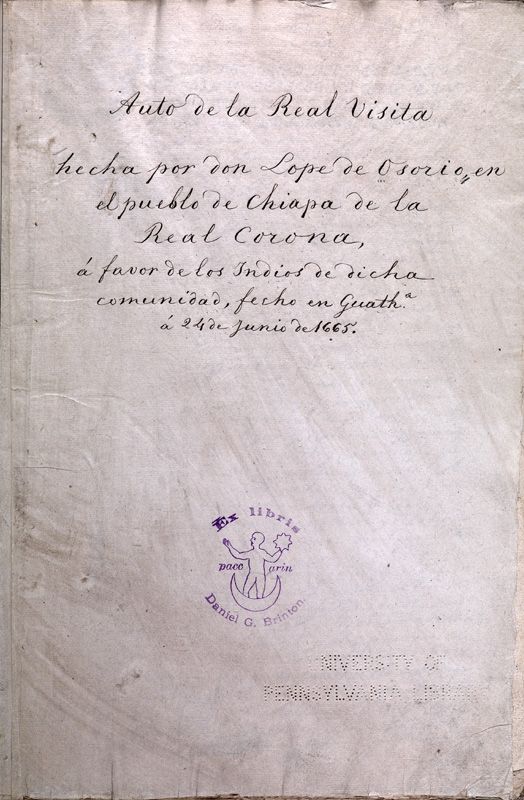 Auto de la Real Visita
hecha por don Lope de Osorio, en
el pueblo de Chiapa de la
Real Corona,
á favor de los Indios de dicha
comunidad, fecho en Guath.ª
á 24 de Junio de 1665.
Ex libris
pacc arin
Daniel G. Brinton.
UNIVERSITY OF
PENNSYLVANIA LIBRARY